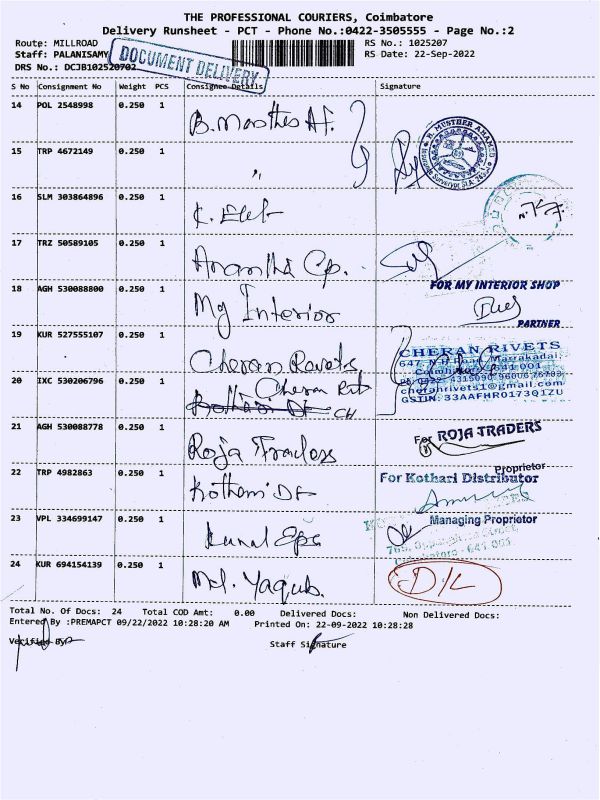 THE PROFESSIONAL COURIERS, Coimbatore
Delivery Runsheet - PCT - Phone No.:0422-3505555 - Page No.:2
Route: MILLROAD
RS No.: 1025207
Staff: PALANISAMY
RS Date: 22-Sep-2022
DRS No.: DCJB102520702
DOCUMENT DELIVERY
S No Consignment No Weight PCS Consignee Details Signature
14 POL 2548998 0.250 1 B.
15 TRP 4672149 0.250 1 "
16 SLM 303864896 0.250 1 K.
17 TRZ 50589105 0.250 1 Anantha Cp.
18 AGH 530088800 0.250 1 My Interior
FOR MY INTERIOR SHOP
PARTNER
19 KUR 527555107 0.250 1 Cheran Rivets
CHERAN RIVETS
641 001
20 IXC 530206796 0.250 1 Cheran CH
cheranrivets1@gmail.com
GSTIN: 33AAFHR0173Q1ZU
21 AGH 530088778 0.250 1 Roja Traders
For ROJA TRADERS
Proprietor
22 TRP 4982863 0.250 1 Kothari
For Kothari Distributor
23 VPL 334699147 0.250 1
Managing Proprietor
24 KUR 694154139 0.250 1 Md. Yaqub.
D/L
Total No. Of Docs: 24 Total COD Amt: 0.00 Delivered Docs: Non Delivered Docs:
Entered By :PREMAPCT 09/22/2022 10:28:20 AM Printed On: 22-09-2022 10:28:28
Verified By:
Staff Signature